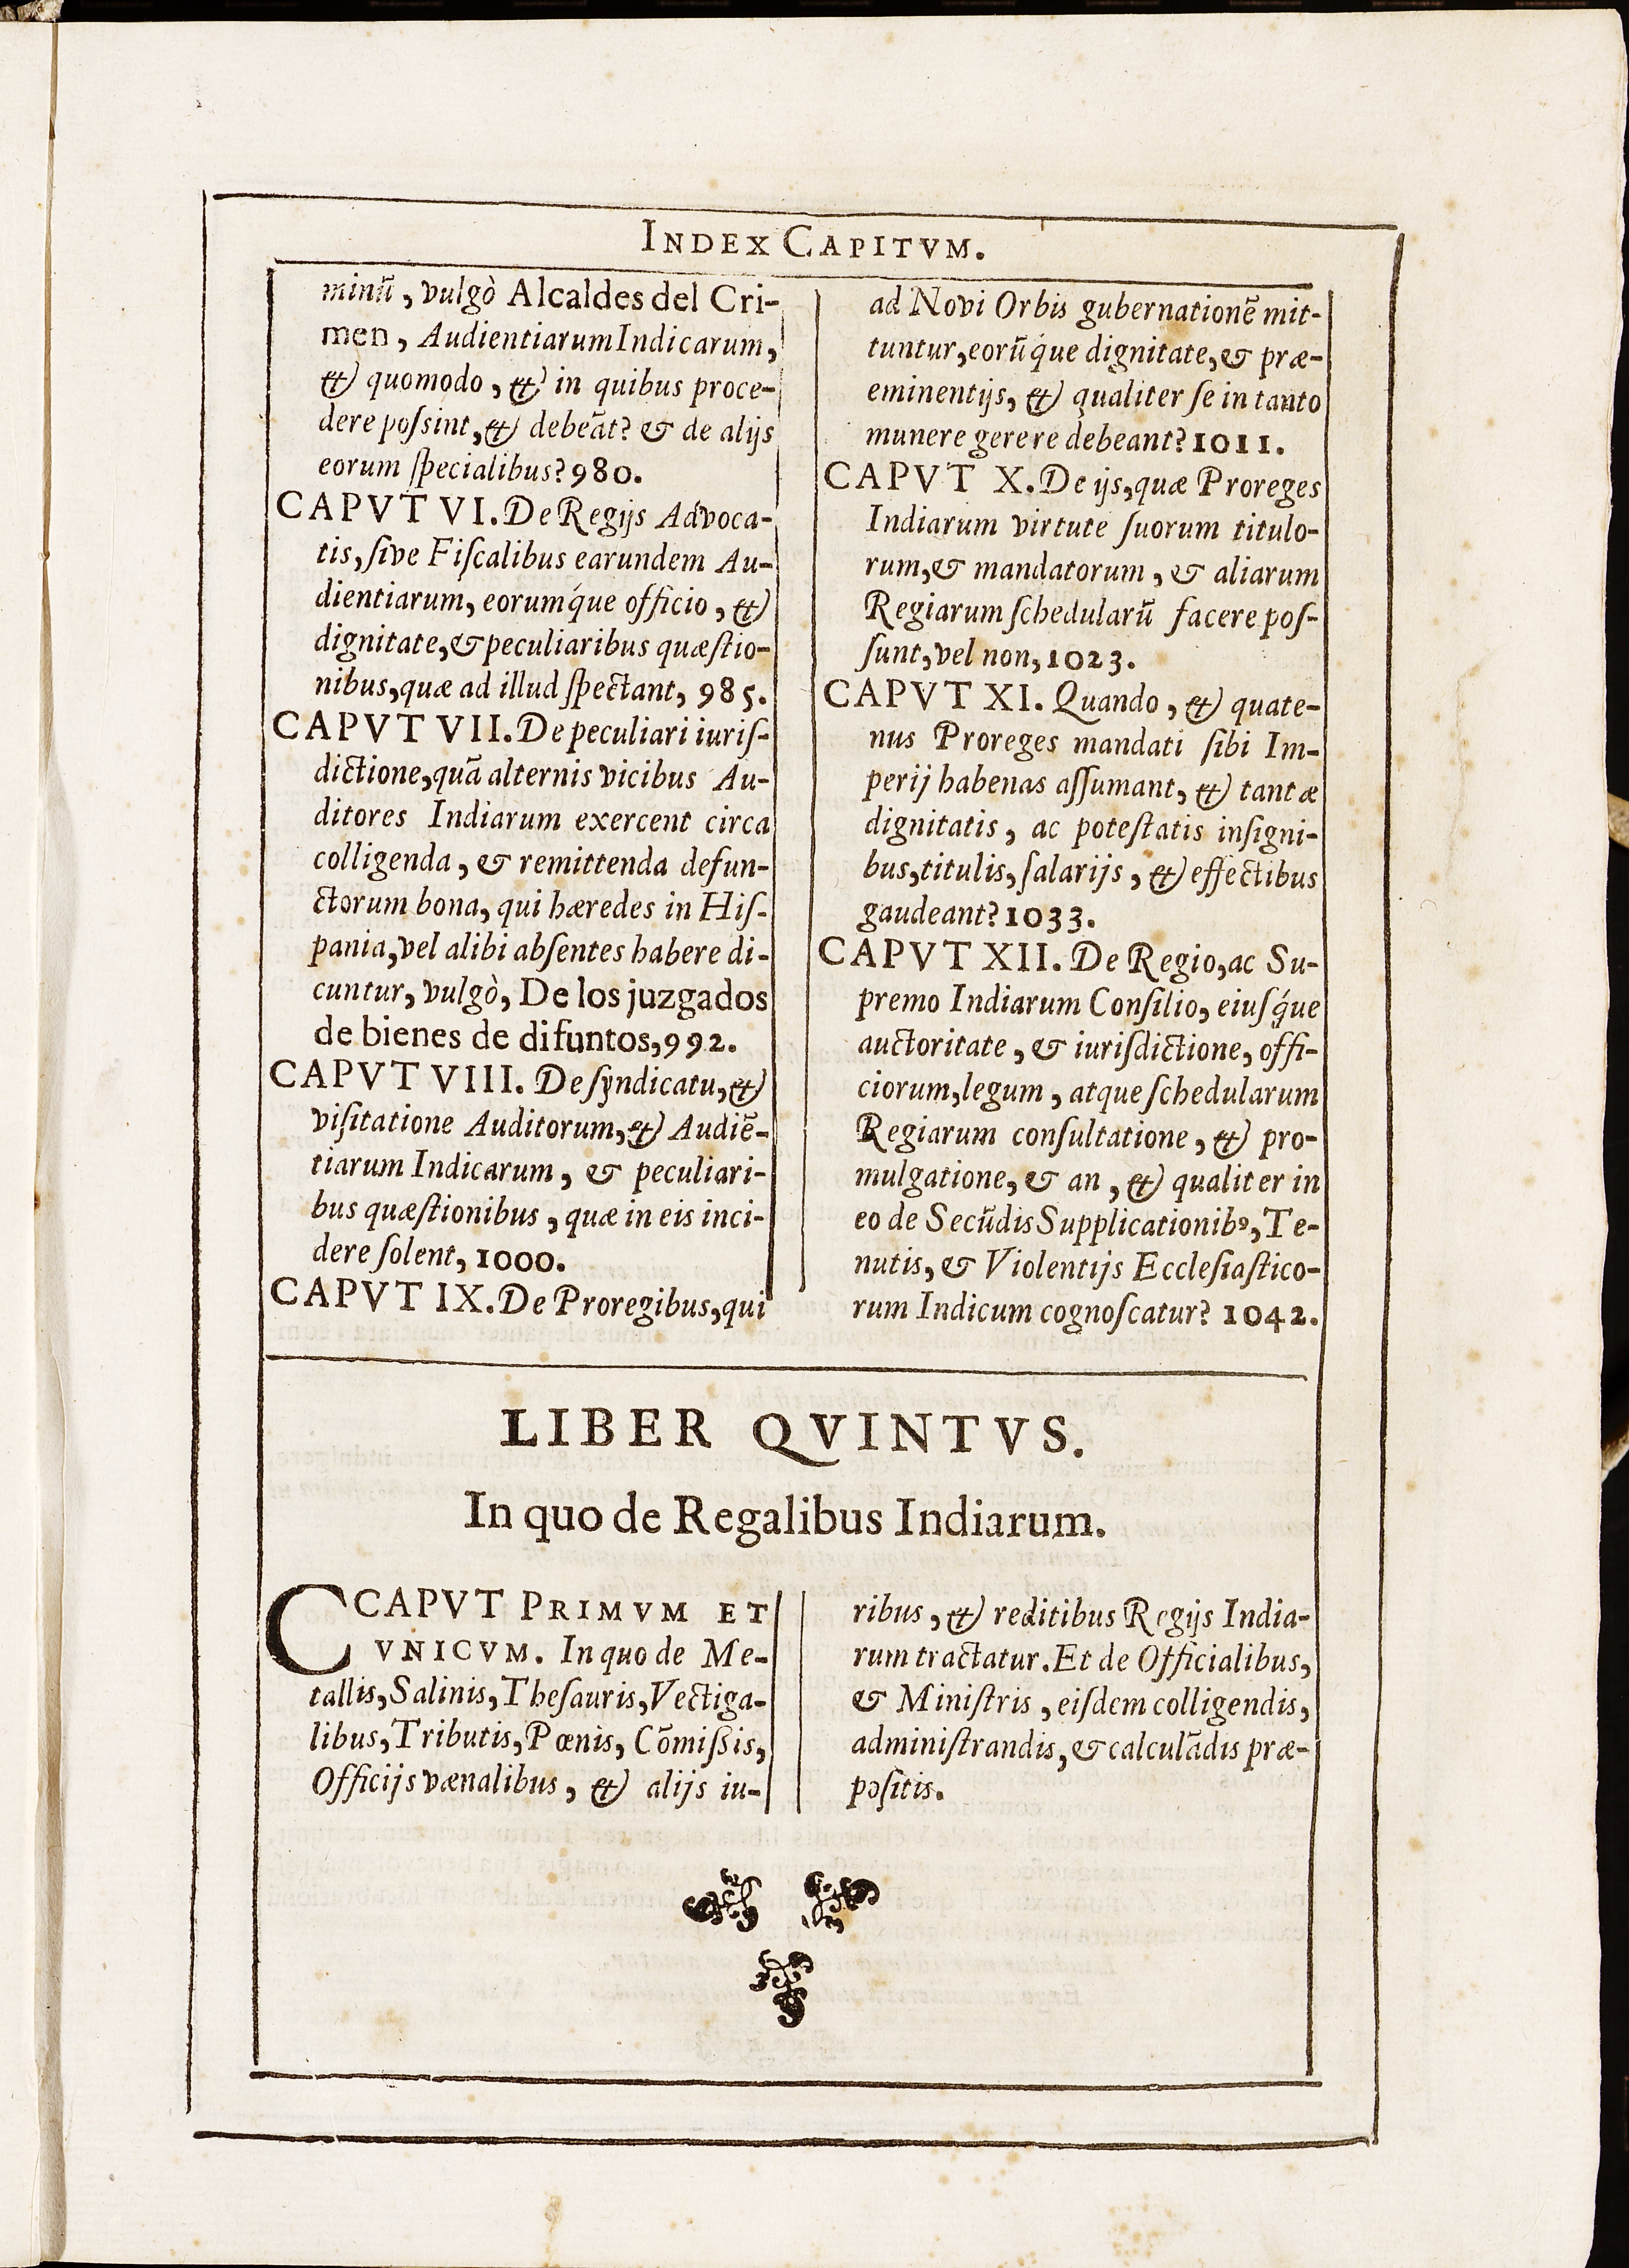 INDEX CAPITVM.
minũ, vulgò Alcaldes del Cri-
men, Audientiarum Indicarum,
& quomodo, & in quibus proce-
dere poſsint, & debeãt? & de alijs
eorum ſpecialibus? 980.
CAPVT VI. De Regijs Advoca-
tis, ſive Fiſcalibus earundem Au-
dientiarum, eorumq́ue officio, &
dignitate, & peculiaribus quæſtio-
nibus, quæ ad illud ſpectant, 985.
CAPVT VII. De peculiari iuriſ-
dictione, quã alternis vicibus Au-
ditores Indiarum exercent circa
colligenda, & remittenda defun-
ctorum bona, qui hæredes in Hiſ-
pania, vel alibi abſentes habere di-
cuntur, vulgò, De los juzgados
de bienes de difuntos, 992.
CAPVT VIII. De ſyndicatu, &
viſitatione Auditorum, & Audiẽ-
tiarum Indicarum, & peculiari-
bus quæſtionibus, quæ in eis inci-
dere ſolent, 1000.
CAPVT IX. De Proregibus, qui
ad Novi Orbis gubernationẽ mit-
tuntur, eorũq́ue dignitate, & præ-
eminentijs, & qualiter ſe in tanto
munere gerere debeant? 1011.
CAPVT X. De ijs, quæ Proreges
Indiarum virtute ſuorum titulo-
rum, & mandatorum, & aliarum
Regiarum ſchedularũ facere poſ-
ſunt, vel non, 1023.
CAPVT XI. Quando, & quate-
nus Proreges mandati ſibi Im-
perij habenas aſſumant, & tantæ
dignitatis, ac poteſtatis inſigni-
bus, titulis, ſalarijs, & effectibus
gaudeant? 1033.
CAPVT XII. De Regio, ac Su-
premo Indiarum Conſilio, eiuſq́ue
auctoritate, & iuriſdictione, offi-
ciorum, legum, atque ſchedularum
Regiarum conſultatione, & pro-
mulgatione, & an, & qualiter in
eo de Secũdis Supplicationibꝰ, Te-
nutis, & Violentijs Eccleſiaſtico-
rum Indicum cognoſcatur? 1042.
LIBER QVINTVS.
In quo de Regalibus Indiarum.
CCAPVT PRIMVM ET
VNICVM. In quo de Me-
tallis, Salinis, Theſauris, Vectiga-
libus, Tributis, Pœnis, Cõmiſsis,
Officijs vænalibus, & alijs iu-
ribus, & reditibus Regijs India-
rum tractatur. Et de Officialibus,
& Miniſtris, eiſdem colligendis,
adminiſtrandis, & calculãdis præ-
poſitis.